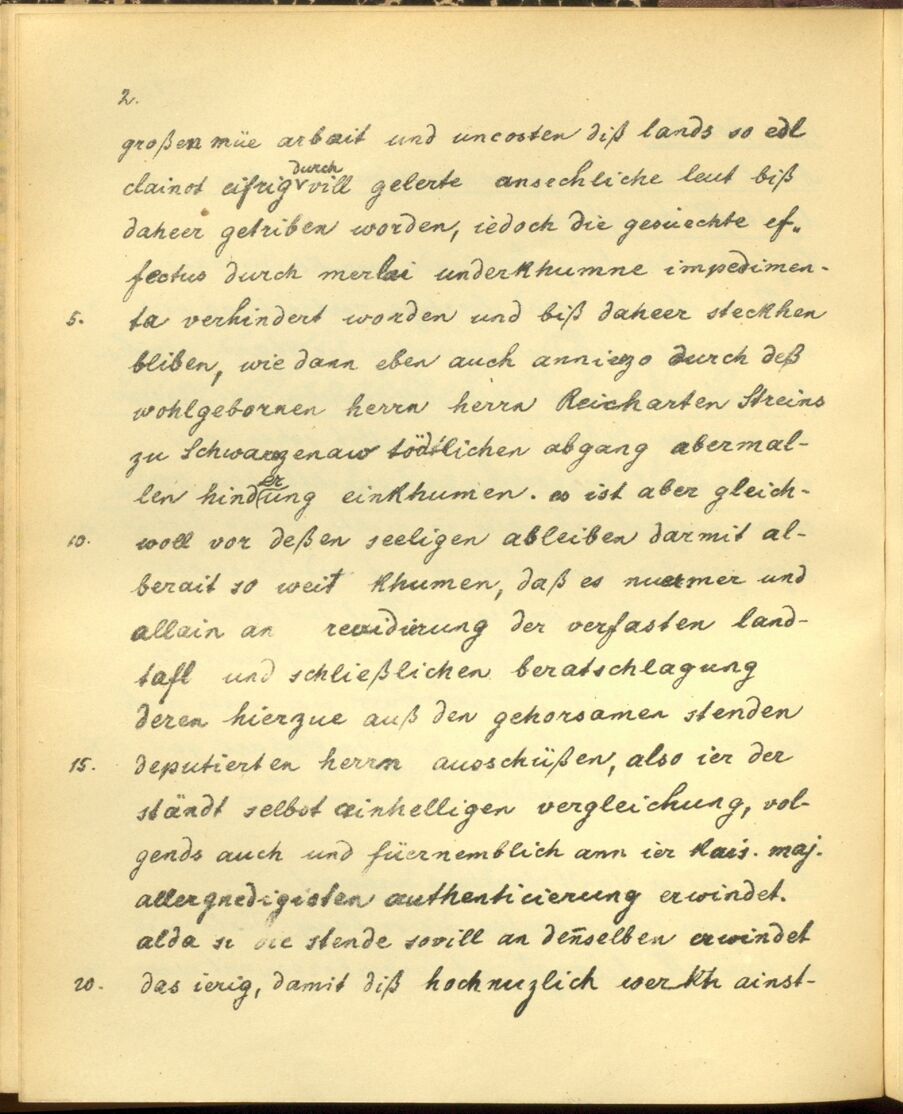 2.
großen müe arbait und uncosten diß lands so edl
durch
clainot eifrig vill gelerte ansechliche leut biß
daheer getriben worden, iedoch die gesüechte ef„
fectus durch merlai underkhumne impedimen-
5. ta verhindert worden und biß daheer steckhen
bliben, wie dann eben auch anniezo durch deß
wohlgebornen herrn herrn Reicharten Streins
zu Schwarzenaw tödtlichen abgang abermal-
len hinderung einkhumen. es ist aber gleich-
10. woll vor deßen seeligen ableiben darmit al-
berait so weit khumen, daß es nuermer und
allain an revidierung der verfasten land-
tafl und schließlichen beratschlagung
deren hierzue auß den gehorsamen stenden
15. deputierten herrn ausschüßen, also ier der
ständt selbst ainhelligen vergleichung, vol-
gends auch und füernemblich ann ier kais. maj.
allergnedigisten authenticierung erwindet.
alda die stende sovill an den̄selben erwindet
20. das ierig, damit diß hochnuzlich werkh ainst-